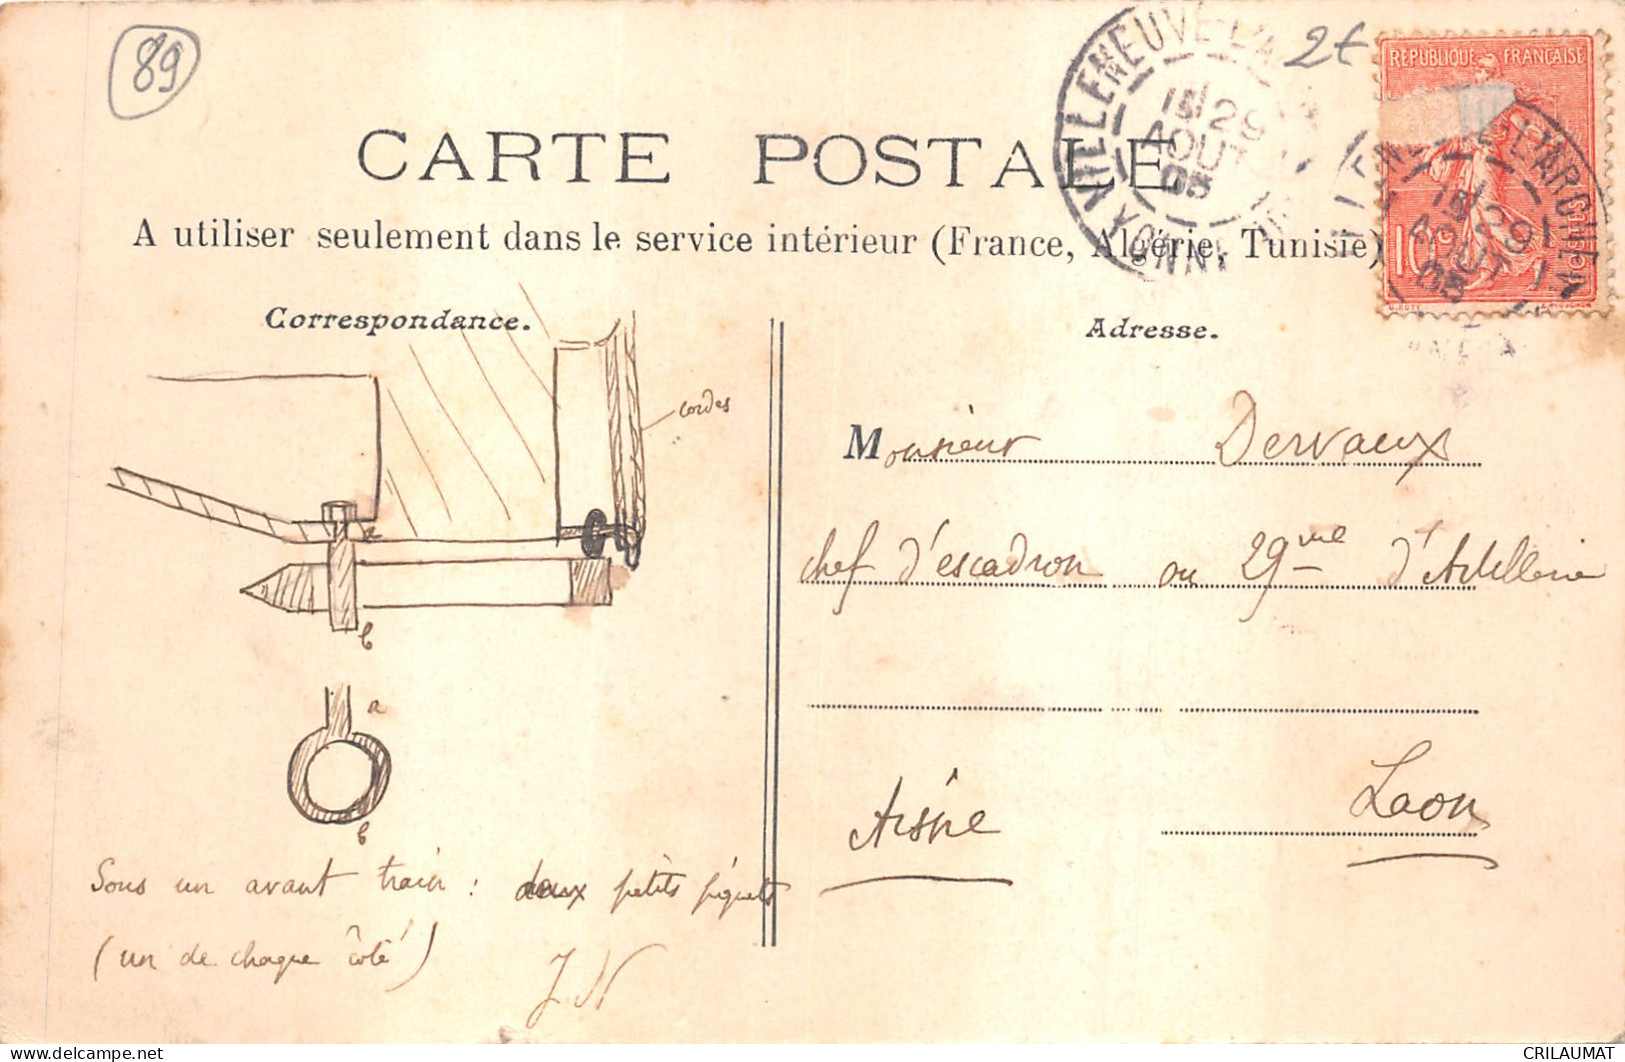 89
2€
REPUBLIQUE FRANÇAISE
POSTES
10c
VILLENEUVE-L'A
YONNE
15 29
AOUT
05
L'ARCHE
15
AOUT
29
05
CARTE POSTALE
A utiliser seulement dans le service intérieur (France, Algérie, Tunisie)
Correspondance.
Adresse.
cordes
a
b
a
b
Sous un avant train : deux petits piquets
(un de chaque côté)
JN
Monsieur Dervaux
chef d'escadron au 29me d'Artillerie
Laon
Aisne
delcampe.net
CRILAUMAT